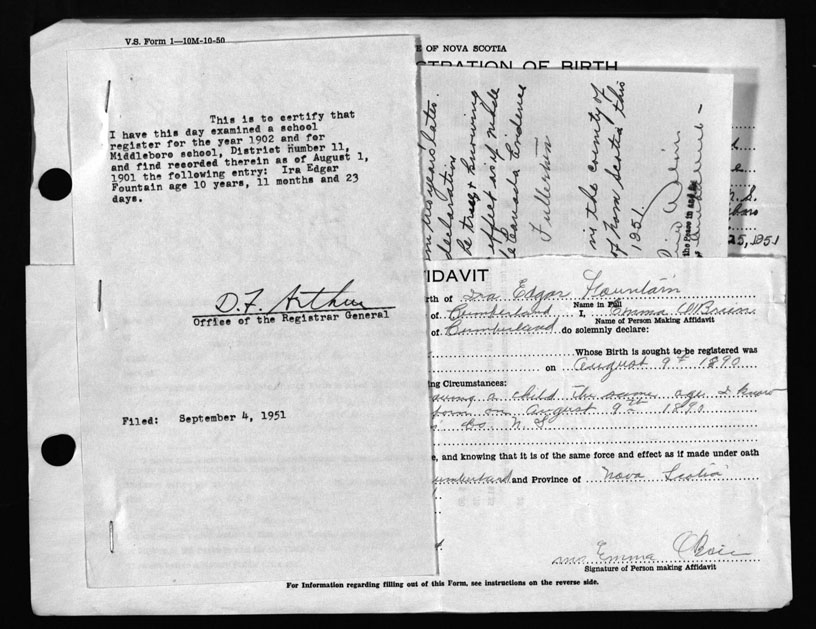 V.S. Form 1—10M-10-50
E OF NOVA SCOTIA
STRATION OF BIRTH
This is to certify that
I have this day examined a school
register for the year 1902 and for
Middleboro school, District Number 11,
and find recorded therein as of August 1,
1901 the following entry: Ira Edgar
Fountain age 10 years, 11 months and 23
days.
D. F. Arthur
Office of the Registrar General
Filed: September 4, 1951
years later.
declaration
be true & knowing
effect as if made
Canada Evidence
Fullerton
in the county of
of Nova Scotia this
1951.
the Peace in and for
25, 1951
FIDAVIT
rth of Ira Edgar Fountain
Name in Full
of Cumberland I, Emma O'Brien
Name of Person Making Affidavit
of Cumberland do solemnly declare:
Whose Birth is sought to be registered was
on August 9th 1890
ng Circumstances:
a child the same age I know
born on August 9th 1890
Co. N.S.
e, and knowing that it is of the same force and effect as if made under oath
umberland and Province of Nova Scotia
Mrs Emma O'Brien
Signature of Person making Affidavit
For Information regarding filling out of this Form, see instructions on the reverse side.